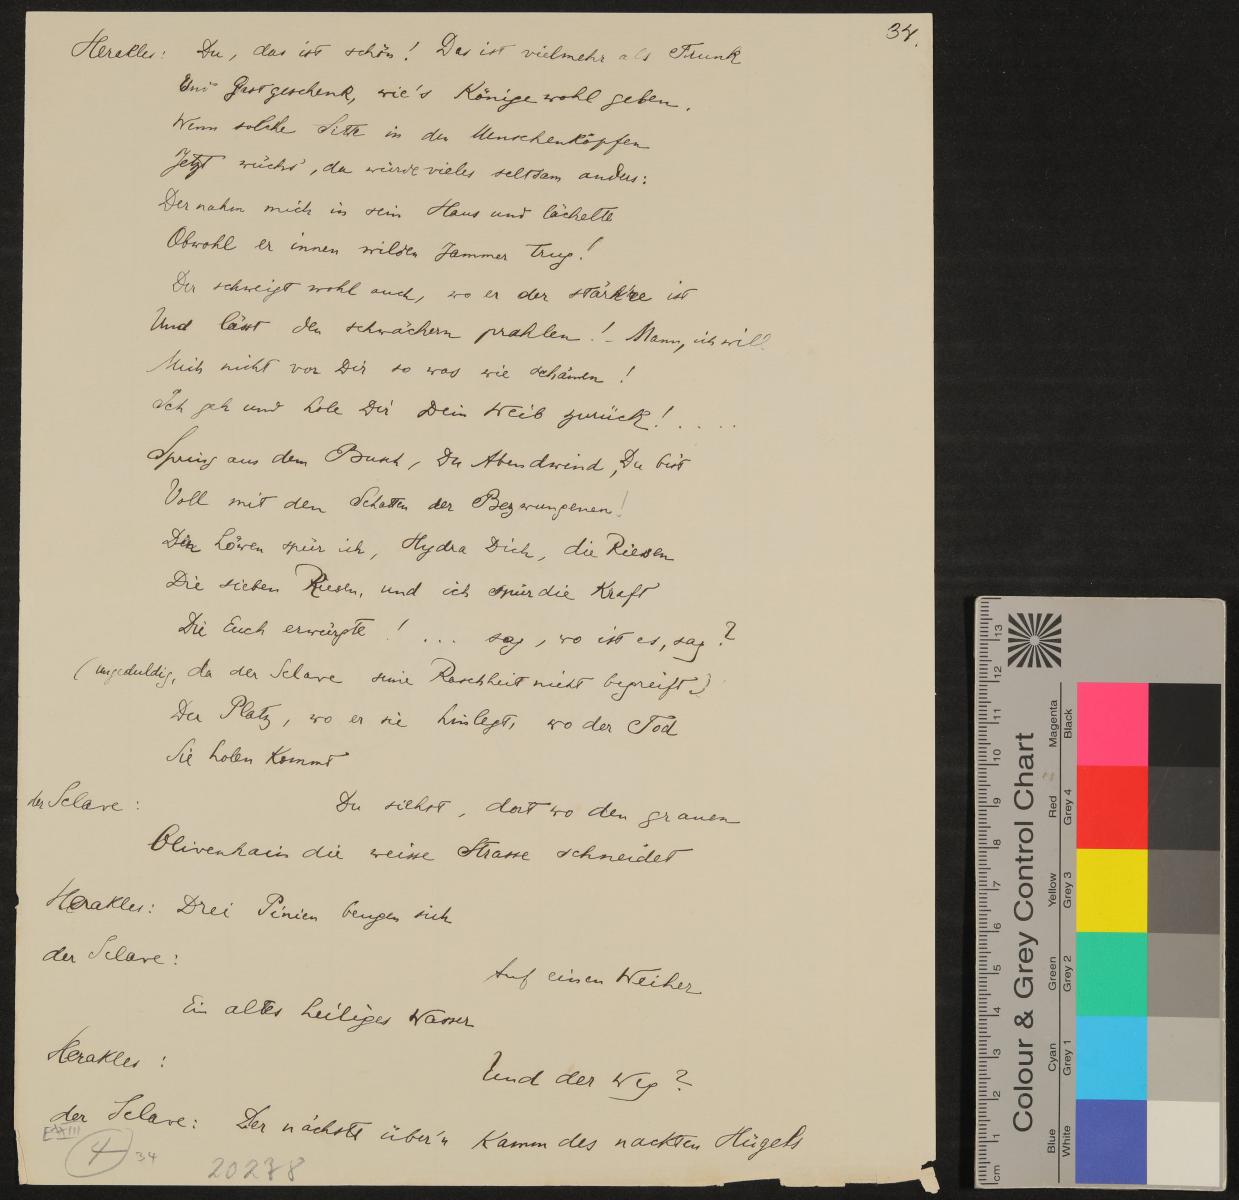 34.
Herakles: Du, das ist schön! Das ist vielmehr als Trunk
Und Gastgeschenk, wie's Könige wohl geben.
Wenn solche Sitte in den Menschenköpfen
Jetzt wüchs', da würde vieles seltsam anders:
Der nahm mich in sein Haus und lächelte
Obwohl er innen wilden Jammer trug!
Der schweigt wohl auch, wo er der stärk're ist
Und lässt den schwächern prahlen! – Mann, ich will
Mich nicht vor Dir so was wie schämen!
Ich geh und hole Dir Dein Weib zurück! ....
Spring aus dem Busch, Du Abendwind, Du bist
Voll mit den Schatten der Bezwungenen!
Den Löwen spür ich, Hydra Dich, die Riesen
Die sieben Riesen, und ich spür die Kraft
Die Euch erwürgte! ... sag, wo ist es, sag?
(ungeduldig, da der Sclave seine Raschheit nicht begreift)
Der Platz, wo er sie hinlegt, wo der Tod
Sie holen kommt
der Sclave: Du siehst, dort wo den grauen
Olivenhain die weisse Strasse schneidet
Herakles: Drei Pinien beugen sich
der Sclave:
Auf einen Weiher
Ein altes heiliges Wasser
Herakles:
Und der Weg?
der Sclave: Der nächste über'n Kamm des nackten Hügels
4
34
20278
Colour & Grey Control Chart
Magenta
Red
Yellow
Green
Cyan
Blue
Black
Grey 4
Grey 3
Grey 2
Grey 1
White
cm 1 2 3 4 5 6 7 8 9 10 11 12 13